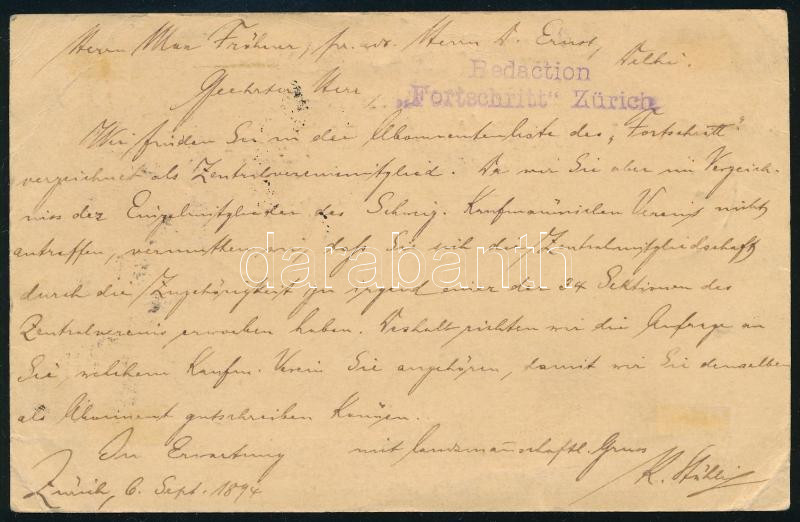 Herrn Max Fröhner, pr. adr. Herrn D. Ernst, Delhi.
Redaction
Geehrter Herr
„Fortschritt“ Zürich
Wir finden Sie in der Abonnentenliste des „Fortschritt“
verzeichnet als Zentralvereinsmitglied. Da wir Sie aber im Verzeich-
niss der Einzelmitglieder des Schweiz. Kaufmännischen Vereins nicht
antreffen, vermuthen wir, daß Sie sich die Zentralmitgliedschaft
durch die Zugehörigkeit zu irgend einer der 54 Sektionen des
Zentralvereins erworben haben. Deshalb richten wir die Anfrage an
Sie, welchem Kaufm. Verein Sie angehören, damit wir Sie demselben
als Abonnent gutschreiben können.
In Erwartung mit landsmannschaftl. Gruss
Zürich, 6. Sept. 1894 K. Stähli
darabanth